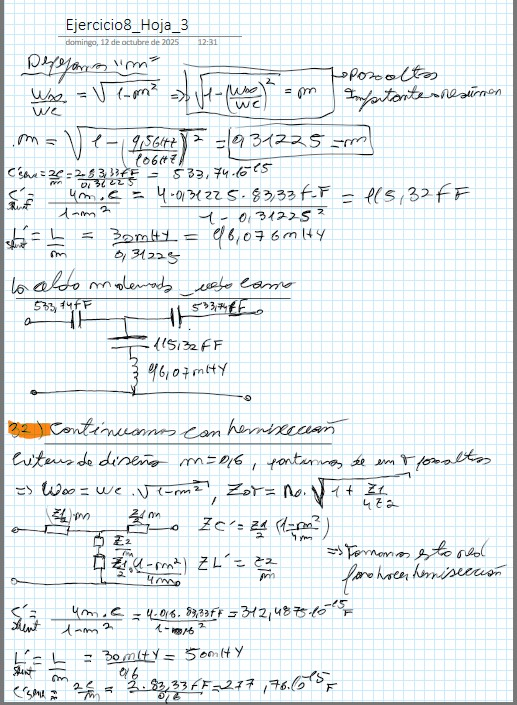 Ejercicio8_Hoja_3
domingo, 12 de octubre de 2025 12:31
"m"
W∞/Wc = √(1-m²) => √(1-(W∞/Wc)²) = m → Pasoaltos
Importante
m = √(1-(9,5GHz/10GHz)²) = 0,31225 = m
C'serie = 2C/m = 2·83,33fF/0,31225 = 533,74·10^-15
C'shunt = 4m·C/(1-m²) = 4·0,31225·83,33fF/(1-0,31225²) = 115,32fF
L'shunt = L/m = 30mHY/0,31225 = 96,076mHY
La celda m derivada queda como
533,74fF 533,74fF
115,32fF
96,07mHY
2.2) Continuamos con hemisección
Criterio de diseño m=0,6, partimos de em T pasoaltos
=> W∞ = Wc·√(1-m²), ZoT = Ro·√(1 + Z1/4Z2)
(Z1/2)m Z1/2 m ZC' = Z1/2 (1-m²/4m)
Z2/m
Z1/2·(1-m²)/4m ZL' = Z2/m => Tomamos esta red
para hacer hemisección
C'shunt = 4m·C/(1-m²) = 4·0,6·83,33fF/(1-0,6²) = 312,4875·10^-15 F
L'shunt = L/m = 30mHY/0,6 = 50mHY
C'serie = 2C/m = 2·83,33fF/0,6 = 277,76·10^-15 F